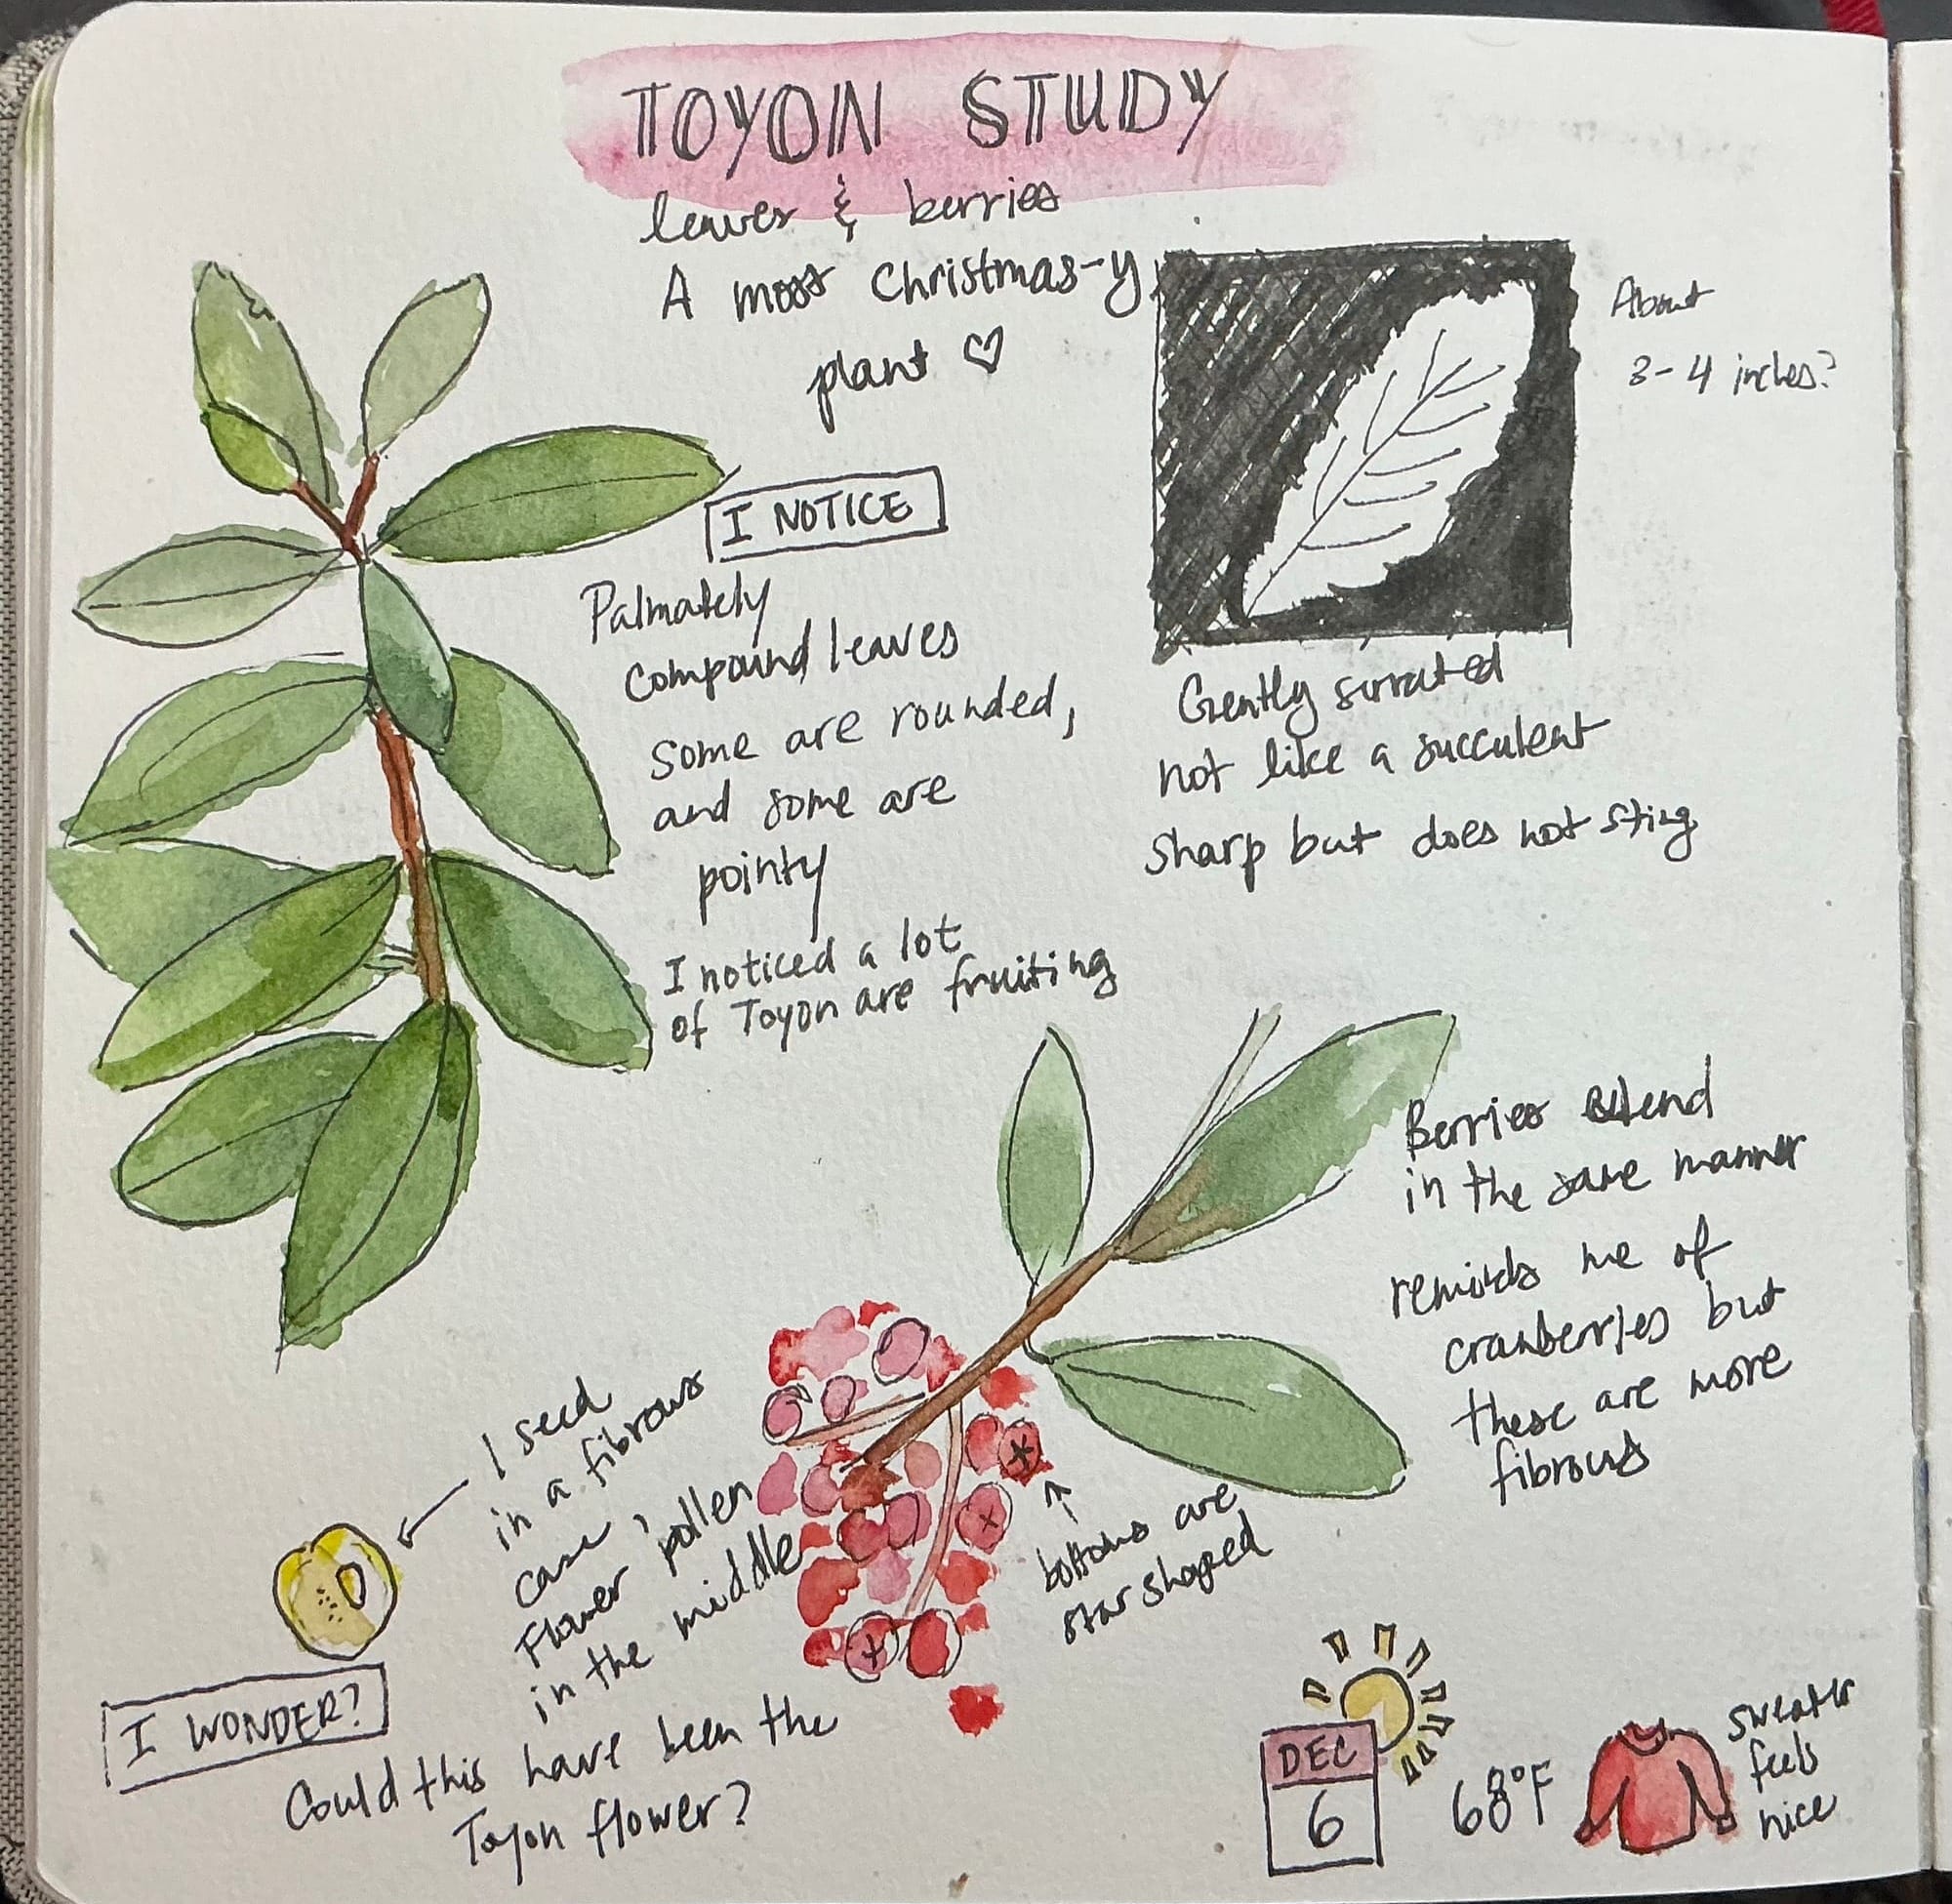 TOYON STUDY
leaves & berries
A most Christmas-y
plant ♡
About
3-4 inches?
I NOTICE
Palmately
compound leaves
some are rounded,
and some are
pointy
I noticed a lot
of Toyon are fruiting
Gently serrated
not like a succulent
sharp but does not sting
Berries blend
in the same manner
reminds me of
cranberries but
these are more
fibrous
1 seed
in a fibrous
case,
Flower pollen
in the middle
bottoms are
star shaped
I WONDER?
Could this have been the
Toyon flower?
DEC
6
68°F
sweater
feels
nice